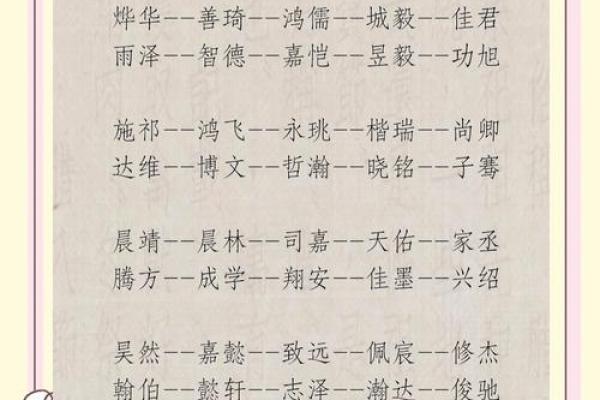 烨华--善琦--鸿儒--城毅--佳君
雨泽--智德--嘉恺--昱毅--功旭
施祁--鸿飞--永珧--楷瑞--尚卿
达维--博文--哲瀚--晓铭--子骞
晨靖--晨林--司嘉--天佑--家丞
腾方--成学--翔安--佳墨--兴绍
昊然--嘉懿--致远--佩宸--修杰
翰伯--懿轩--志泽--瀚达--俊驰